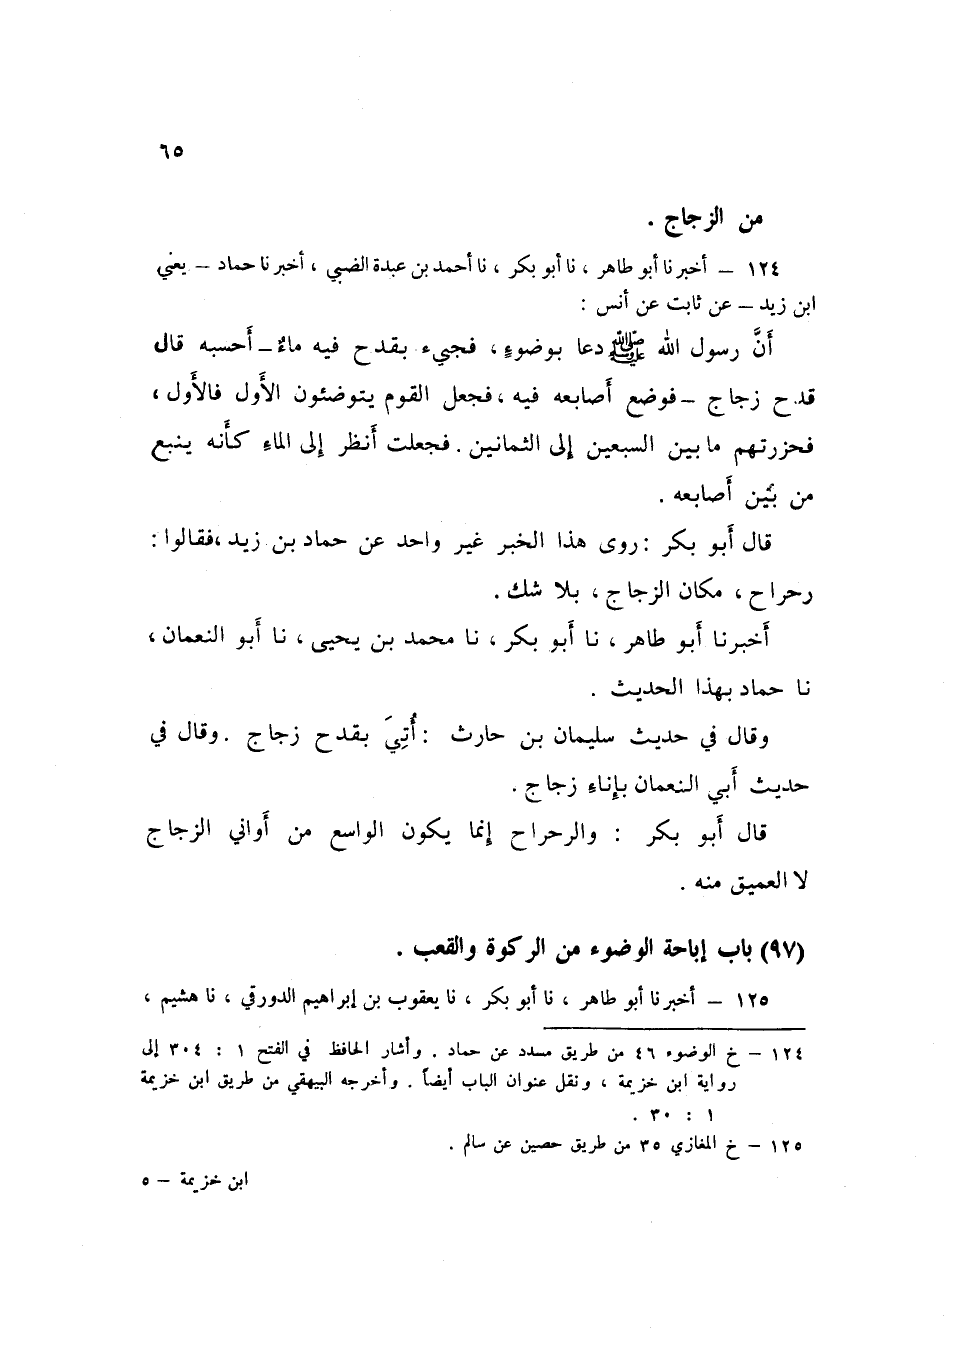 ٦٥
من الزجاج .
١٢٤ – أخبرنا أبو طاهر ، نا أبو بكر ، نا أحمد بن عبدة الضبي ، أخبرنا حماد – يعني
ابن زيد – عن ثابت عن أنس :
أَنَّ رسول الله ﷺ دعا بوضوءٍ ، فجيء بقدح فيه ماءٌ – أَحسبه قال
قدح زجاج – فوضع أَصابعه فيه ، فجعل القوم يتوضئون الأَول فالأَول ،
فحزرتهم ما بين السبعين إِلى الثمانين . فجعلت أَنظر إِلى الماءِ كأَنه ينبع
من بَيْن أَصابعه .
قال أَبو بكر : روى هذا الخبر غير واحد عن حماد بن زيد ، فقالوا :
رحراح ، مكان الزجاج ، بلا شك .
أَخبرنا أَبو طاهر ، نا أَبو بكر ، نا محمد بن يحيى ، نا أَبو النعمان ،
نا حماد بهذا الحديث .
وقال في حديث سليمان بن حارث : أُتِيَ بقدح زجاج . وقال في
حديث أَبي النعمان بإِناءِ زجاج .
قال أَبو بكر : والرحراح إِنما يكون الواسع من أَواني الزجاج
لا العميق منه .
(٩٧) باب إباحة الوضوء من الركوة والقعب .
١٢٥ – أخبرنا أبو طاهر ، نا أبو بكر ، نا يعقوب بن إبراهيم الدورقي ، نا هشيم ،
١٢٤ – خ الوضوء ٤٦ من طريق مسدد عن حماد . وأشار الحافظ في الفتح ١ : ٣٠٤ إلى
رواية ابن خزيمة ، ونقل عنوان الباب أيضاً . وأخرجه البيهقي من طريق ابن خزيمة
١ : ٣٠ .
١٢٥ – خ المغازي ٣٥ من طريق حصين عن سالم .
ابن خزيمة – ٥